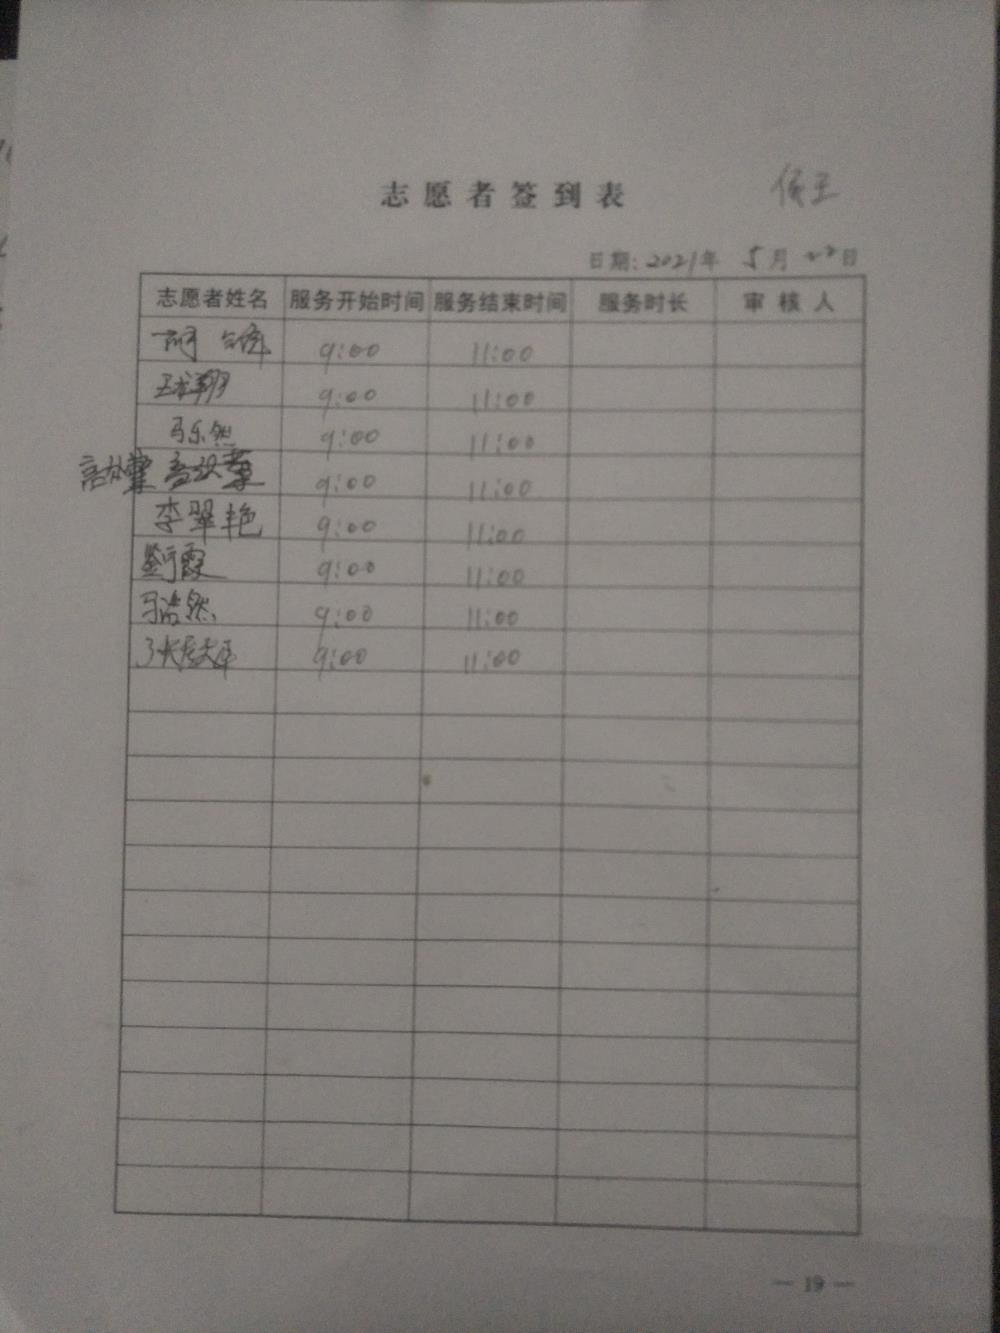 志愿者签到表
日期：2021年 5月 22日
志愿者姓名 服务开始时间 服务结束时间 服务时长 审核人
9:00 11:00
9:00 11:00
马乐然 9:00 11:00
9:00 11:00
李翠艳 9:00 11:00
9:00 11:00
马浩然 9:00 11:00
9:00 11:00
— 19 —